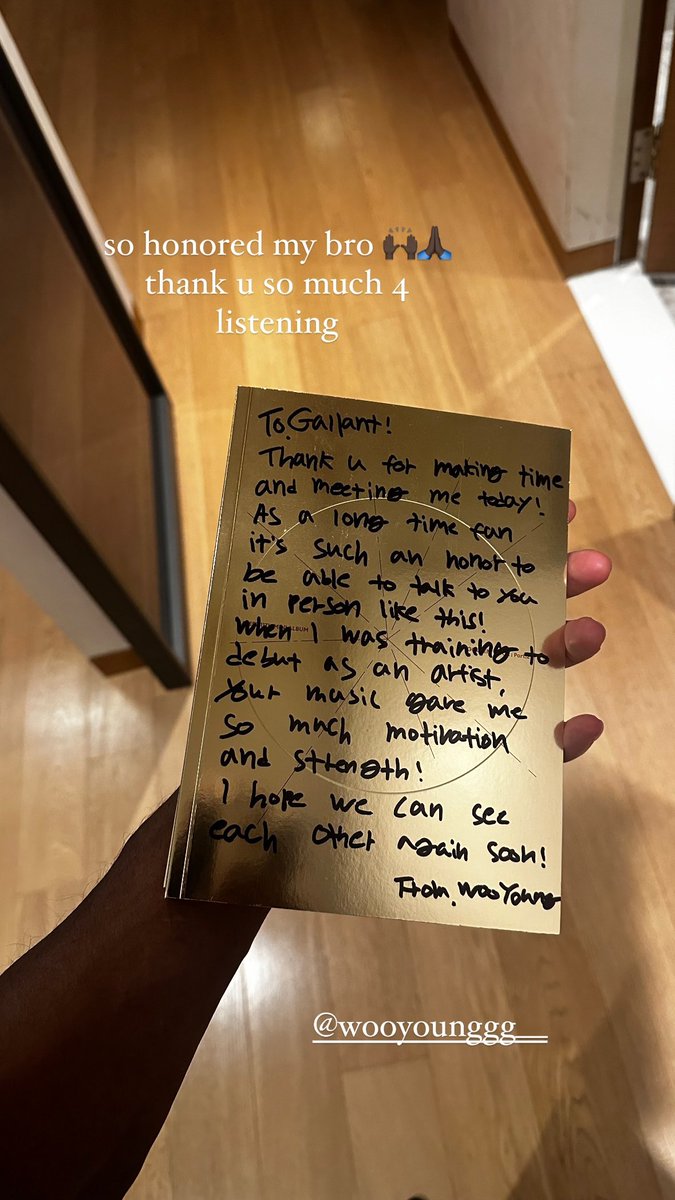 so honored my bro 🙌🏿🙏🏿
thank u so much 4
listening
To.Gallant!
Thank u for making time
and meeting me today!
As a long time fan
it's such an honor to
be able to talk to you
in person like this!
ALBUM
when I was training to
debut as an artist,
your music gave me
so much motivation
and strength!
I hope we can see
each other again soon!
From. WooYoung
@wooyounggg__